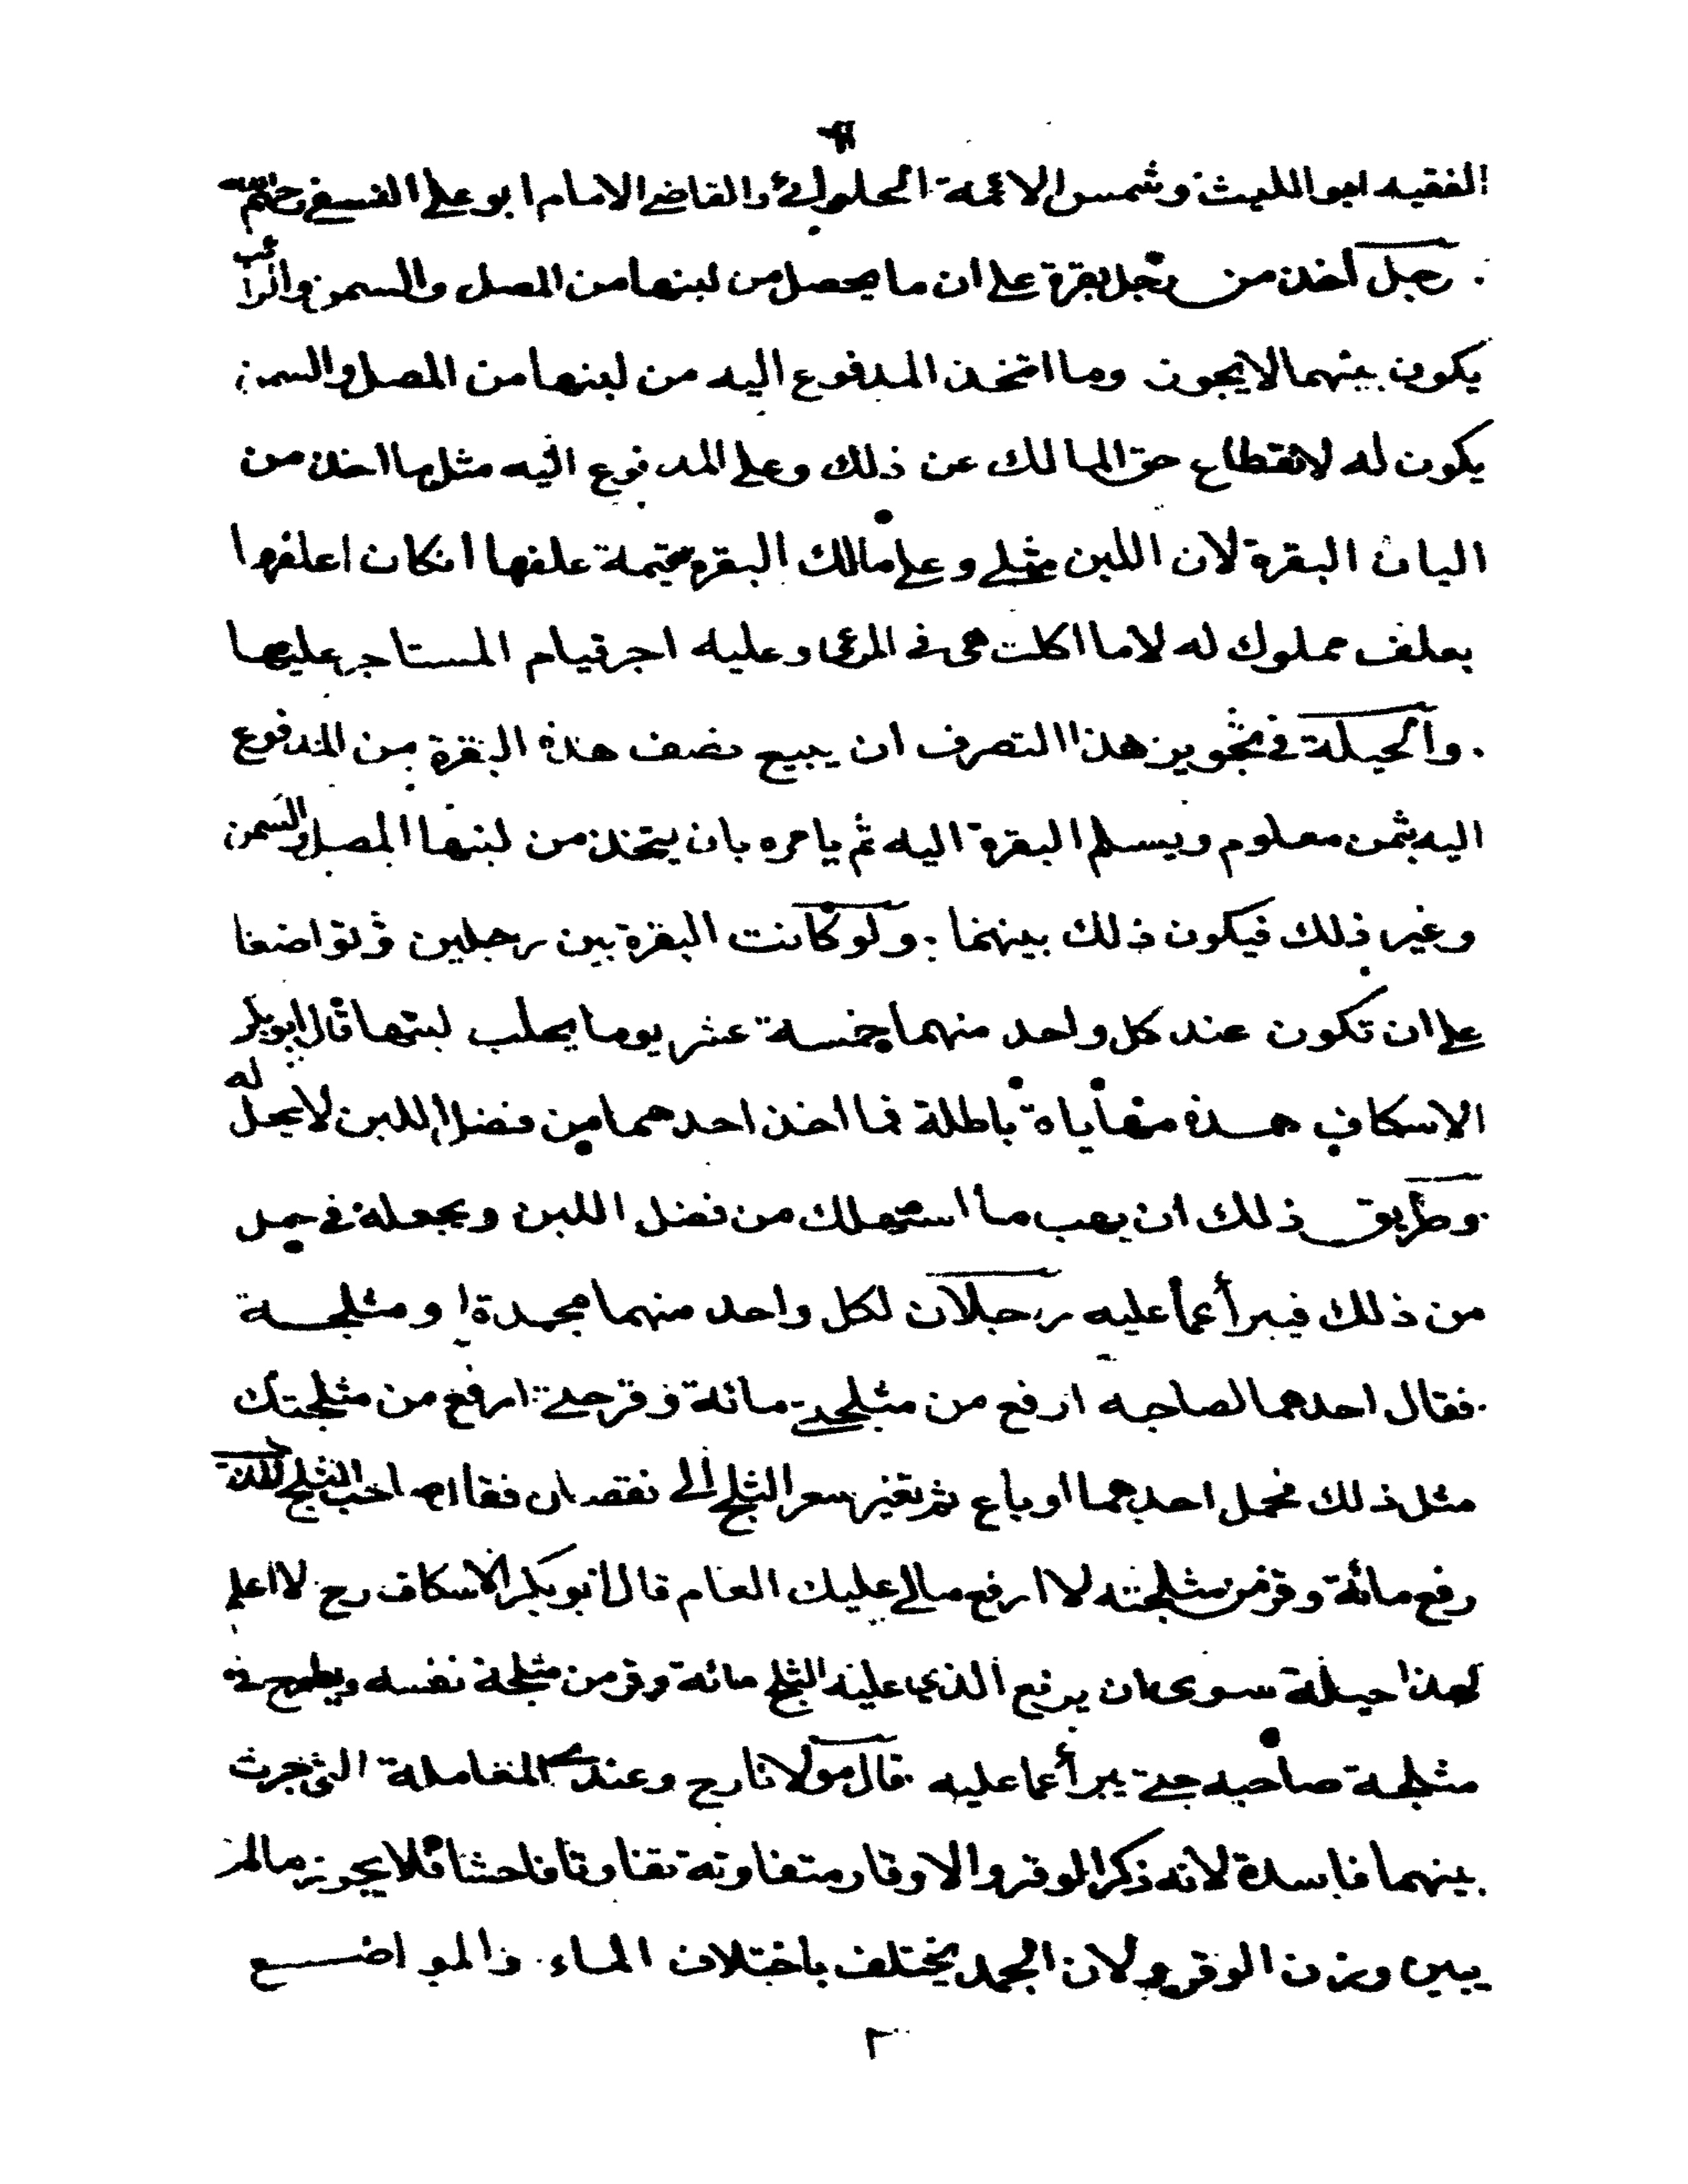 الفقيه ابو الليث وشمس الائمة الحلوائي والقاضي الامام ابو علي النسفي رحمهم الله
رجل اخذ من رجل بقرة على ان ما يحصل من لبنها من المصل والسمن والرائب
يكون بينهما لا يجوز وما اتخذ المدفوع اليه من لبنها من المصل والسمن
يكون له لانقطاع حق المالك عن ذلك وعلى المدفوع اليه مثل ما اخذ من
البان البقرة لان اللبن مثلي وعلى مالك البقرة قيمة علفها ان كان اعلفها
بعلف مملوك له لا ما اكلت هي في المرعى وعليه اجر قيام المستاجر عليها
والحيلة في تجويز هذا التصرف ان يبيع نصف هذه البقرة من المدفوع
اليه بثمن معلوم ويسلم البقرة اليه ثم يامره بان يتخذ من لبنها المصل والسمن
وغير ذلك فيكون ذلك بينهما ولو كانت البقرة بين رجلين وتواضعا
على ان تكون عند كل واحد منهما خمسة عشر يوما يحلب لبنها قال ابو بكر
الاسكاف هذه مهاياة باطلة فما اخذ احدهما من فضل اللبن لا يحل له
وطريق ذلك ان يهب ما استهلك من فضل اللبن ويجعله في حل
من ذلك فيبرأ عما عليه رجلان لكل واحد منهما مجمدة او مثلجة
فقال احدهما لصاحبه ارفع من مثلجتي مائة وقر حتى ارفع من مثلجتك
مثل ذلك فحمل احدهما او باع ثم تغير سعر الثلج الى نقصان فقال صاحب الثلج للذي
رفع مائة وقر من مثلجته لا ارفع مالي عليك العام قال ابو بكر الاسكاف رح لا اعلم
لهذا حيلة سوى ان يرفع الذي عليه الثلج مائة وقر من مثلجة نفسه ويطرح في
مثلجة صاحبه حتى يبرأ عما عليه قال مولانا رح وعندي المعاملة التي جرت
بينهما فاسدة لانه ذكر الوقر والاوقار متفاوتة تفاوتا فاحشا فلا يجوز مالم
يبين وزن الوقر ولان الجمد يختلف باختلاف الماء والمواضع
٢